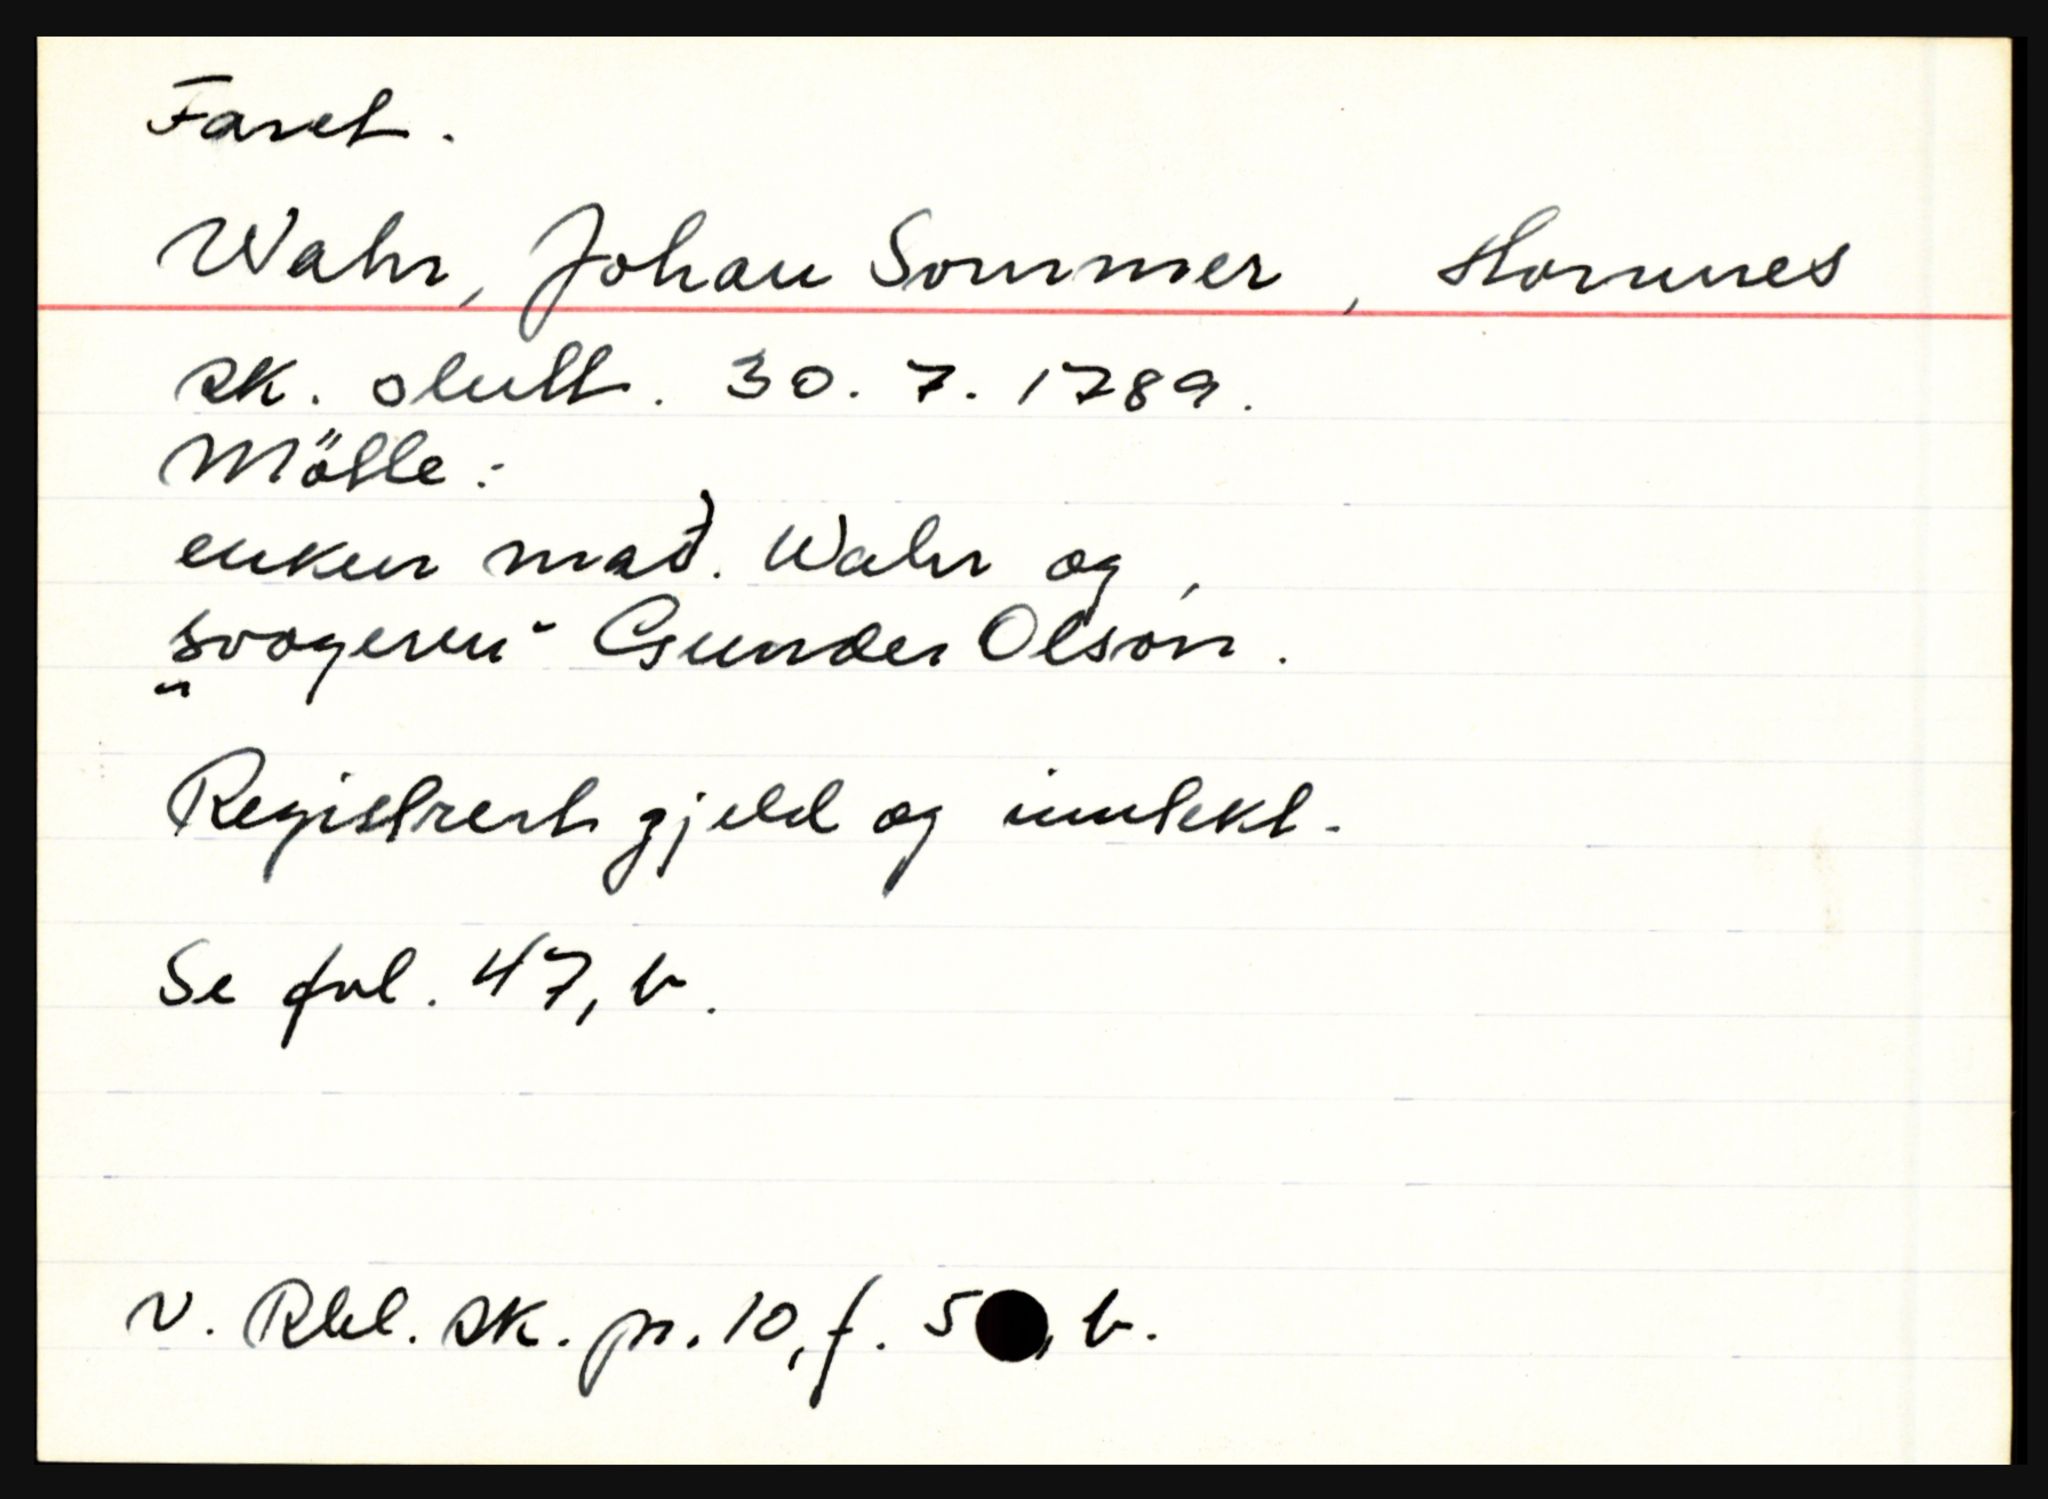 Faret.
Wahr, Johan Sommer, Hornnes
sk. slutt. 30. 7. 1789.
Mötte:
enken mad. Wahr og
"svogeren" Gunder Olson.
Registrert gjeld og inntekt.
Se fol. 47, b.
V. Rbl. sk. pr. 10, f. 5 , b.